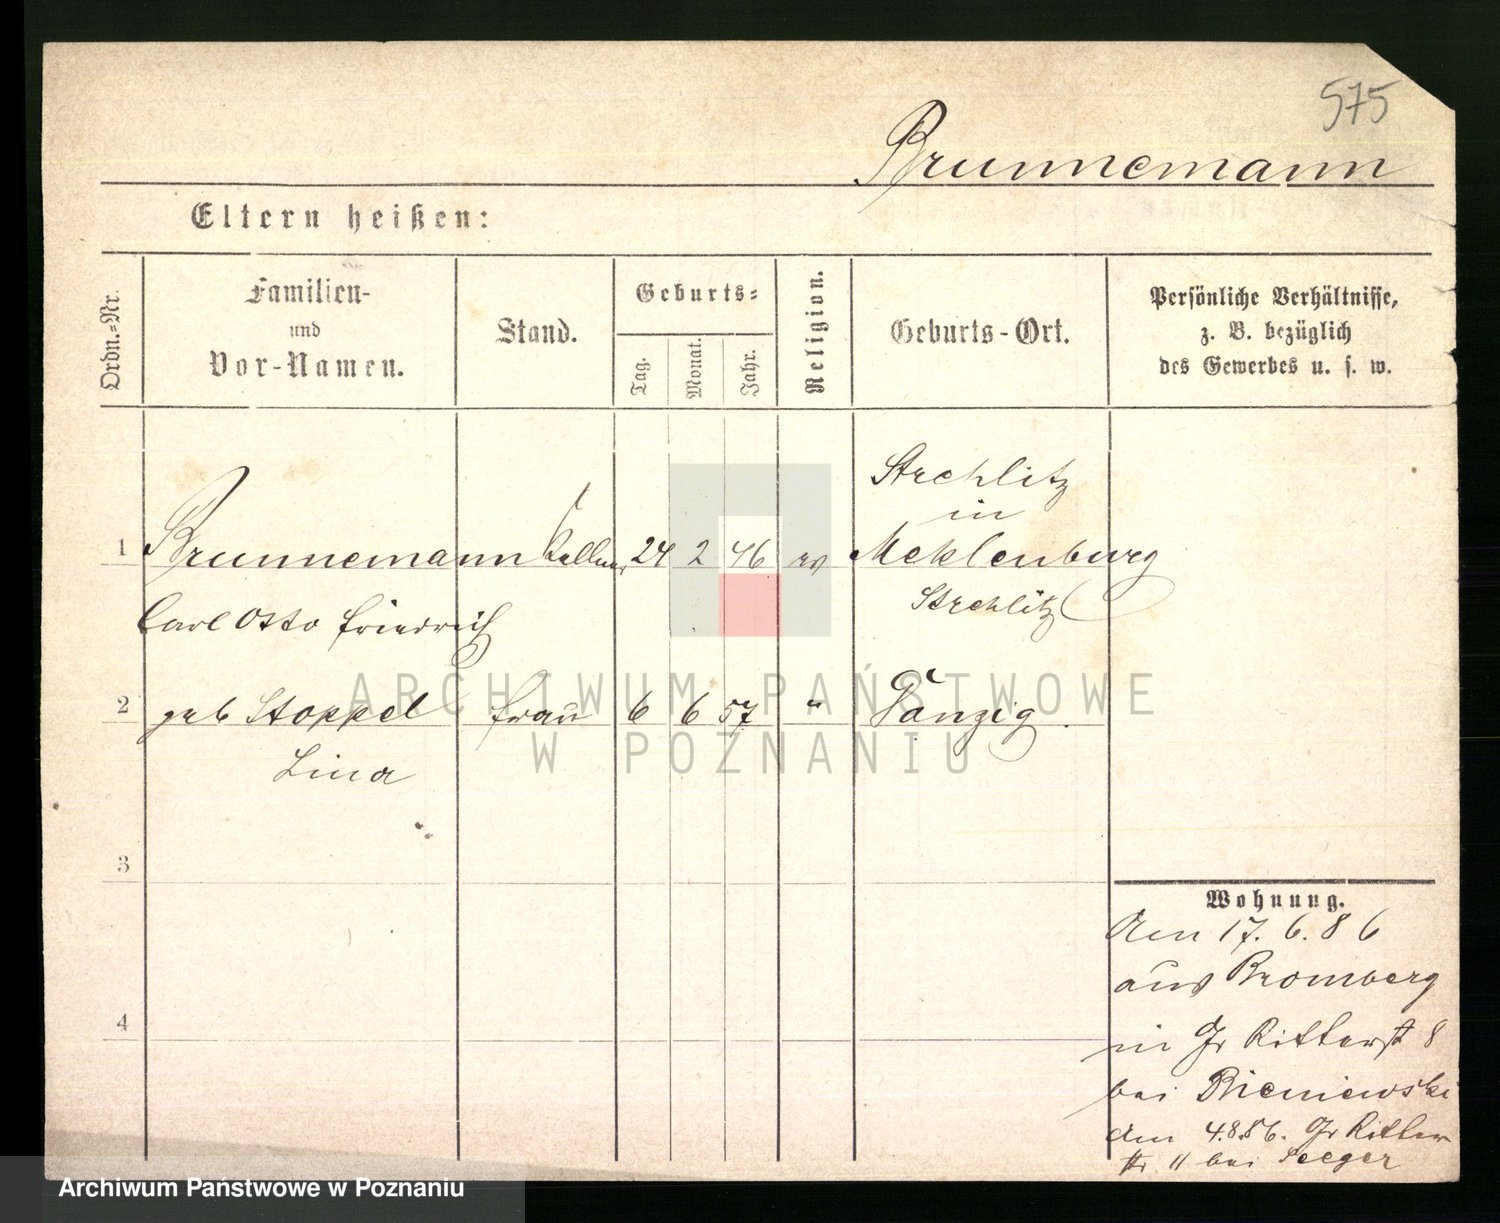 575
Brunnemann
Eltern heißen:
Ordn.-Nr.
Familien-
und
Vor-Namen.
Stand.
Geburts-
Tag.
Monat.
Jahr.
Religion.
Geburts-Ort.
Persönliche Verhältnisse,
z. B. bezüglich
des Gewerbes u. s. w.
Strehlitz
in
1 Brunnemann Kellner 24 2 46 ev Meklenburg
Carl Otto Friedrich Strehlitz
2 geb Stoppel Frau 6 6 57 " Danzig
Lina
3
4
Wohnung.
Am 17. 6. 86
aus Bromberg
in Gr Ritterst 8
bei Bieniewski
Am 4.8.86. Gr Ritter
str 11 bei Seeger
ARCHIWUM PAŃSTWOWE
W POZNANIU
Archiwum Państwowe w Poznaniu